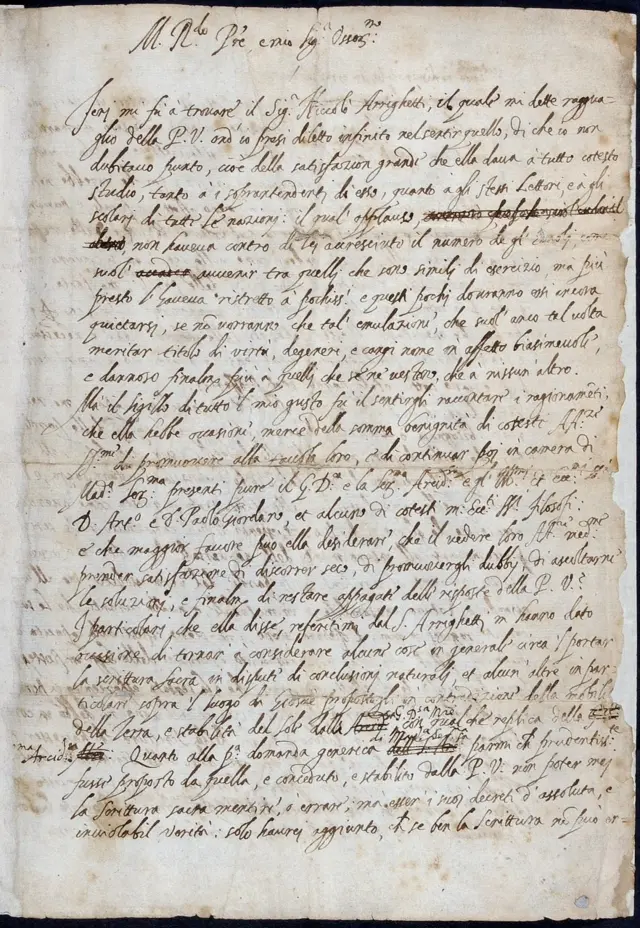 M. R.do P.re e mio Sig.re Osser.mo
Ieri mi fu à trovare il Sig.r Niccolò Arrighetti, il quale mi dette raggua-
glio della P. V. ond'io presi diletto infinito nel sentir quello, di che io non
dubitavo punto, cioè della satisfazion grande che ella dava à tutto cotesto
Studio, tanto à i soprantendenti di esso, quanto à gli stessi Lettori, e à gli
scolari di tutte le nazioni: il qual applauso,
non haveva contro di lei accresciuto il numero de gl'
suol' avvenir tra quelli che sono simili di esercizio, ma più
presto l'haveva ristretto à pochiss.i e questi pochi dovranno essi ancora
quietarsi, se nõ vorranno che tal' emulazione, che suol' anco tal volta
meritar titolo di virtù, degeneri, e cangi nome in affetto biasimevole,
e dannoso finalm.e più à quelli che se ne vestono, che à nissun' altro.
Ma il sigillo di tutto il mio gusto fu il sentirgli raccontar i ragionamẽti,
che ella hebbe occasione, mercè della somma benignità di coteste A.ze
S.me di promuovere alla loro, e di continuar poi in camera di
Mad.a Ser.ma presenti pure il G. D.a e la Ser.ma Arcid.sa e gl' Ill.mi et ecc.mi SS.ri
D. Ant.o e D. Paolo Giordano, et alcuni di cotesti m. Ecc.ti SS. filosofi:
e che maggior favore può ella desiderare, che il vedere loro Al.ze med.me
prender satisfazione di discorrer seco, di promuovergli dubbii, di ascoltarne
le soluzioni, e finalm.e di restare appagate delle risposte della P. V.a
I particolari che ella disse, referitimi dal S. Arrighetti, m'hanno dato
occasione di tornar' à considerare alcune cose in generale circa 'l portar
la scrittura sacra in dispute di conclusioni naturali, et alcun' altre in par-
ticolare sopra 'l luogo di Giosuè propostogli in contradizione della mobilità
della Terra, e stabilità del Sole dalla Gran Duc.sa Madre con qualche replica della
Ser.ma Arcid.sa Quanto alla p.a domanda generica di Mad.a Ser.ma parmi ch' prudentiss.te
fusse proposto da quella, e conceduto, e stabilito dalla P. V. non poter mai
la Scrittura sacra mentire, o errare: ma esser i suoi decreti d'assoluta, e
inviolabil verità: solo haurei aggiunto, ch' se ben la Scrittura nõ può er-